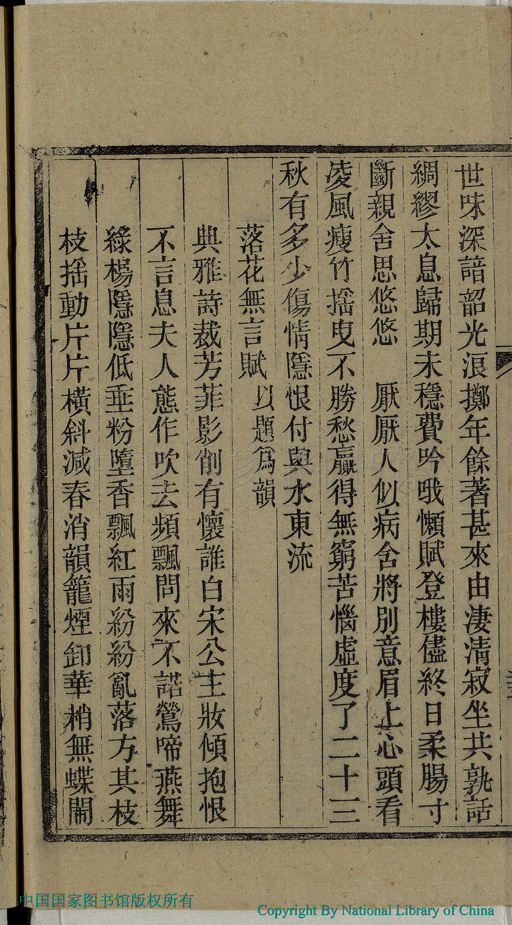 世味深諳韶光浪擲年餘著甚來由淒清寂坐共孰話
綢繆太息歸期未穩費吟哦懶賦登樓儘終日柔腸寸
斷親舍思悠悠　厭厭人似病舍將別意眉上心頭看
凌風瘦竹揺曳不勝愁贏得無窮苦惱虛度了二十三
秋有多少傷情隱恨付與水東流
落花無言賦以題爲韻
典雅詩裁芳菲影削有懷誰白宋公主妝傾抱恨
不言息夫人態作吹去頻飄問來不諾鶯啼燕舞
綠楊隱隱低垂粉墮香飄紅雨紛紛亂落方其枝
枝揺動片片橫斜減春消韻籠煙卸華梢無蝶鬧
中国国家图书馆版权所有
Copyright By National Library of China